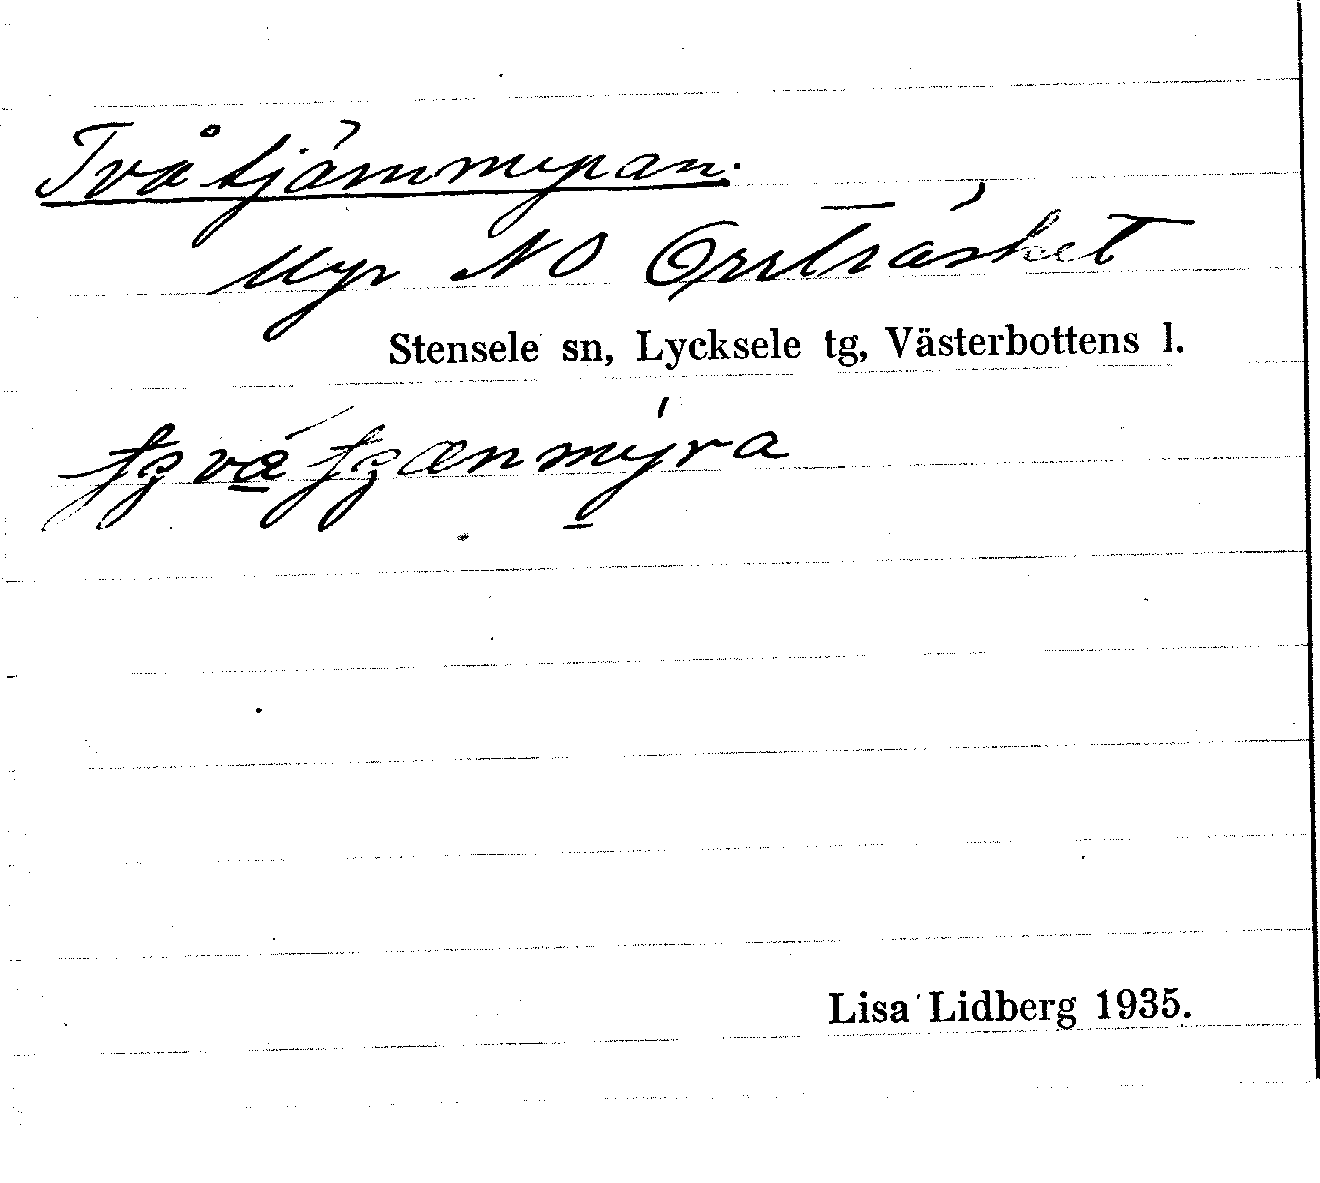 Två tjärnmyran.
Myr NO Orrträsket
Stensele sn, Lycksele tg, Västerbottens l.
Lisa Lidberg 1935.